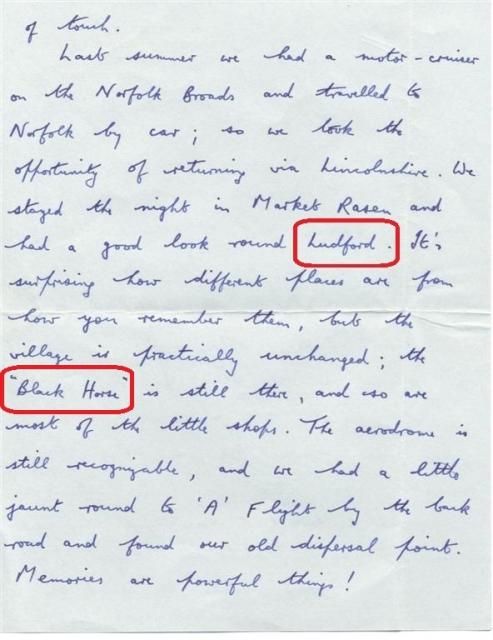 of touch.
Last summer we had a motor-cruiser
on the Norfolk Broads and travelled to
Norfolk by car; so we took the
opportunity of returning via Lincolnshire. We
stayed the night in Market Rasen and
had a good look round Ludford. It's
surprising how different places are from
how you remember them, but the
village is practically unchanged; the
"Black Horse" is still there, and so are
most of the little shops. The aerodrome is
still recognizable, and we had a little
jaunt round to 'A' Flight by the back
road and found our old dispersal point.
Memories are powerful things!